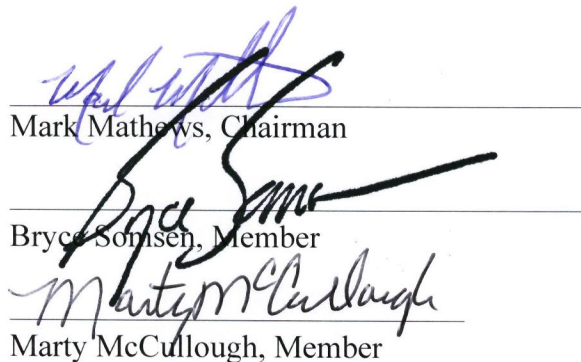 Mark Mathews
Mark Mathews, Chairman
Bryce Somsen
Bryce Somsen, Member
Marty McCullough
Marty McCullough, Member